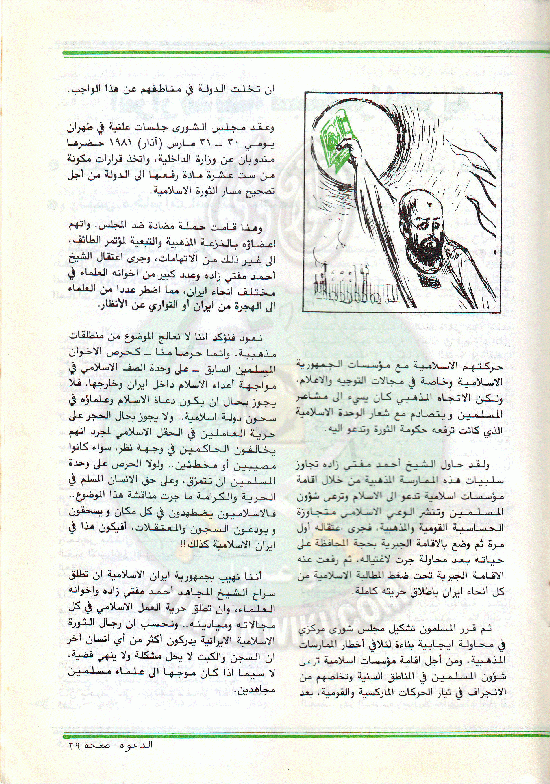 حركتهم الاسلامية مع مؤسسات الجمهورية
الاسلامية وخاصة في مجالات التوجيه والاعلام،
ولكن الاتجاه المذهبي كان يسيء الى مشاعر
المسلمين ويتصادم مع شعار الوحدة الاسلامية
الذي كانت ترفعه حكومة الثورة وتدعو اليه.
ولقد حاول الشيخ أحمد مفتي زاده تجاوز
سلبيات هذه الممارسة المذهبية من خلال اقامة
مؤسسات اسلامية تدعو الى الاسلام وترعى شؤون
المسلمين وتنشر الوعي الاسلامي متجاوزة
الحساسية القومية والمذهبية، فجرى اعتقاله أول
مرة ثم وضع بالاقامة الجبرية بحجة المحافظة على
حياته بعد محاولة جرت لاغتياله، ثم رفعت عنه
الاقامة الجبرية تحت ضغط المطالبة الاسلامية من
كل أنحاء ايران باطلاق حريته كاملة.
ثم قرر المسلمون تشكيل مجلس شورى مركزي
في محاولة ايجابية بناءة لتلافي أخطار الممارسات
المذهبية، ومن أجل اقامة مؤسسات اسلامية ترعى
شؤون المسلمين في المناطق السنية وتخلصهم من
الانجراف في تيار الحركات الماركسية والقومية، بعد
ان تخلت الدولة في مناطقهم عن هذا الواجب.
وعقد مجلس الشورى جلسات علنية في طهران
يومي ٣٠ ــ ٣١ مارس (آذار) ١٩٨١ حضرها
مندوبان عن وزارة الداخلية، واتخذ قرارات مكونة
من ست عشرة مادة رفعها الى الدولة من أجل
تصحيح مسار الثورة الاسلامية.
وهنا قامت حملة مضادة ضد المجلس، واتهم
اعضاؤه بالنزعة المذهبية والتبعية لمؤتمر الطائف،
الى غير ذلك من الاتهامات، وجرى اعتقال الشيخ
أحمد مفتي زاده وعدد كبير من اخوانه العلماء في
مختلف أنحاء ايران، مما اضطر عددا من العلماء
الى الهجرة من ايران أو التواري عن الأنظار.
نعود فنؤكد اننا لا نعالج الموضوع من منطلقات
مذهبية، وانما حرصا منا ــ كحرص الاخوان
المسلمين السابق ــ على وحدة الصف الاسلامي في
مواجهة أعداء الاسلام داخل ايران وخارجها، فلا
يجوز بحال ان يكون دعاة الاسلام وعلماؤه في
سجون دولة اسلامية.. ولا يجوز بحال الحجر على
حرية العاملين في الحقل الاسلامي لمجرد انهم
يخالفون الحاكمين في وجهة نظر، سواء كانوا
مصيبين أو مخطئين.. ولولا الحرص على وحدة
المسلمين ان تتمزق، وعلى حق الانسان المسلم في
الحرية والكرامة ما جرت مناقشة هذا الموضوع..
فالاسلاميون يضطهدون في كل مكان ويسحقون
ويودعون السجون والمعتقلات، أفيكون هذا في
ايران الاسلامية كذلك!!
أننا نهيب بجمهورية ايران الاسلامية ان تطلق
سراح الشيخ المجاهد أحمد مفتي زاده واخوانه
العلماء، وان تطلق حرية العمل الاسلامي في كل
مجالاته وميادينه.. ونحسب ان رجال الثورة
الاسلامية الايرانية يدركون أكثر من أي انسان آخر
ان السجن والكبت لا يحل مشكلة ولا ينهي قضية،
لا سيما اذا كان موجها الى علماء مسلمين
مجاهدين.
الدعوة صفحة ٢٩